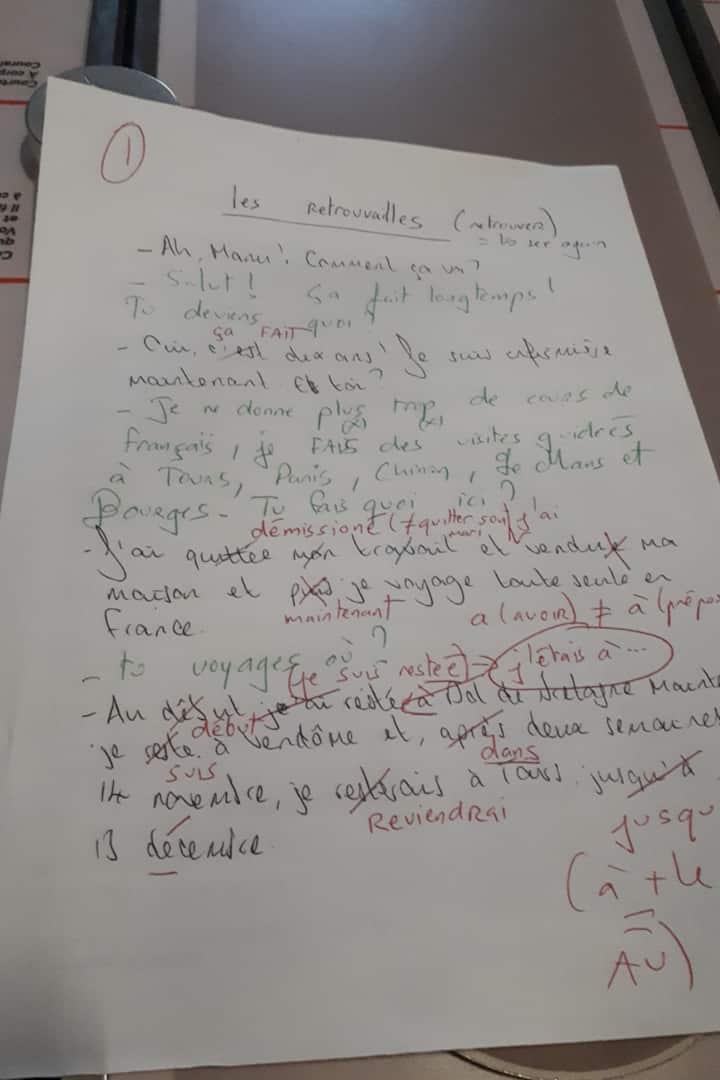 1
les Retrouvailles (retrouver)
= to see again
- Ah, Manu! Comment ça va?
- Salut! Ça fait longtemps!
Tu deviens quoi?
ça FAIT
- Oui, c'est dix ans! Je suis infirmière
maintenant. Et toi?
- Je ne donne plus trop de cours de
français, je FAIS des visites guidées
à Tours, Paris, Chinon, Le Mans et
Bourges. Tu fais quoi ici?
démissioné (≠ quitter son mari) j'ai
- J'ai quittée mon travail et vendu ma
maison et puis je voyage toute seule en
maintenant
France.
a (avoir) ≠ à (prépo
- tu voyages où?
(je suis restée) = j'étais à...
- Au début je ai résté à Dol de Bretagne Mainte
début
je reste à Vendôme et, après deux semaines
suis
dans
14 novembre, je resterais à Tours jusqu'à
REviendRai
13 décembre.
jusqu
(à + le
=
AU)